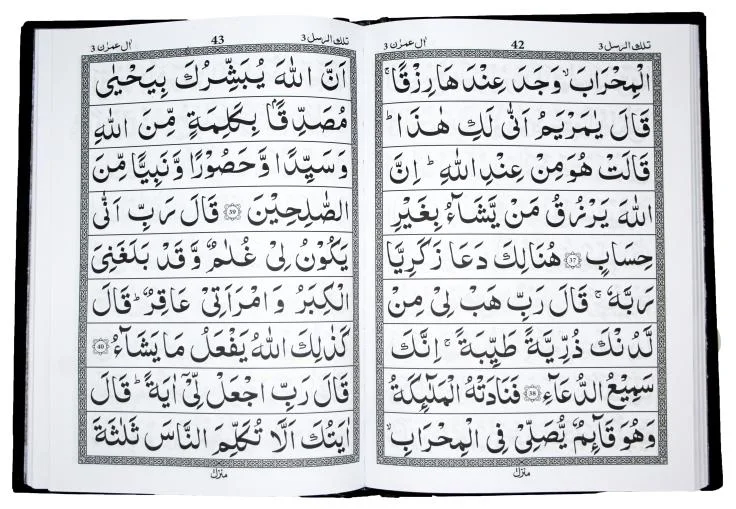 تلك الرسل 3
42
اٰل عمرٰن 3
الْمِحْرَابَ ۙ وَجَدَ عِنْدَهَا رِزْقًا ۚ
قَالَ يٰمَرْيَمُ اَنّٰى لَكِ هٰذَا ؕ
قَالَتْ هُوَ مِنْ عِنْدِ اللّٰهِ ؕ اِنَّ
اللّٰهَ يَرْزُقُ مَنْ يَّشَآءُ بِغَيْرِ
حِسَابٍ ﴿37﴾ هُنَالِكَ دَعَا زَكَرِيَّا
رَبَّهٗ ۚ قَالَ رَبِّ هَبْ لِيْ مِنْ
لَّدُنْكَ ذُرِّيَّةً طَيِّبَةً ۚ اِنَّكَ
سَمِيْعُ الدُّعَآءِ ﴿38﴾ فَنَادَتْهُ الْمَلٰٓئِكَةُ
وَهُوَ قَآئِمٌ يُّصَلِّيْ فِي الْمِحْرَابِ ۙ
منزل
تلك الرسل 3
43
اٰل عمرٰن 3
اَنَّ اللّٰهَ يُبَشِّرُكَ بِيَحْيٰى
مُصَدِّقًاۢ بِكَلِمَةٍ مِّنَ اللّٰهِ
وَسَيِّدًا وَّحَصُوْرًا وَّنَبِيًّا مِّنَ
الصّٰلِحِيْنَ ﴿39﴾ قَالَ رَبِّ اَنّٰى
يَكُوْنُ لِيْ غُلٰمٌ وَّقَدْ بَلَغَنِيَ
الْكِبَرُ وَامْرَاَتِيْ عَاقِرٌ ؕ قَالَ
كَذٰلِكَ اللّٰهُ يَفْعَلُ مَا يَشَآءُ ﴿40﴾
قَالَ رَبِّ اجْعَلْ لِّيْٓ اٰيَةً ؕ قَالَ
اٰيَتُكَ اَلَّا تُكَلِّمَ النَّاسَ ثَلٰثَةَ
منزل